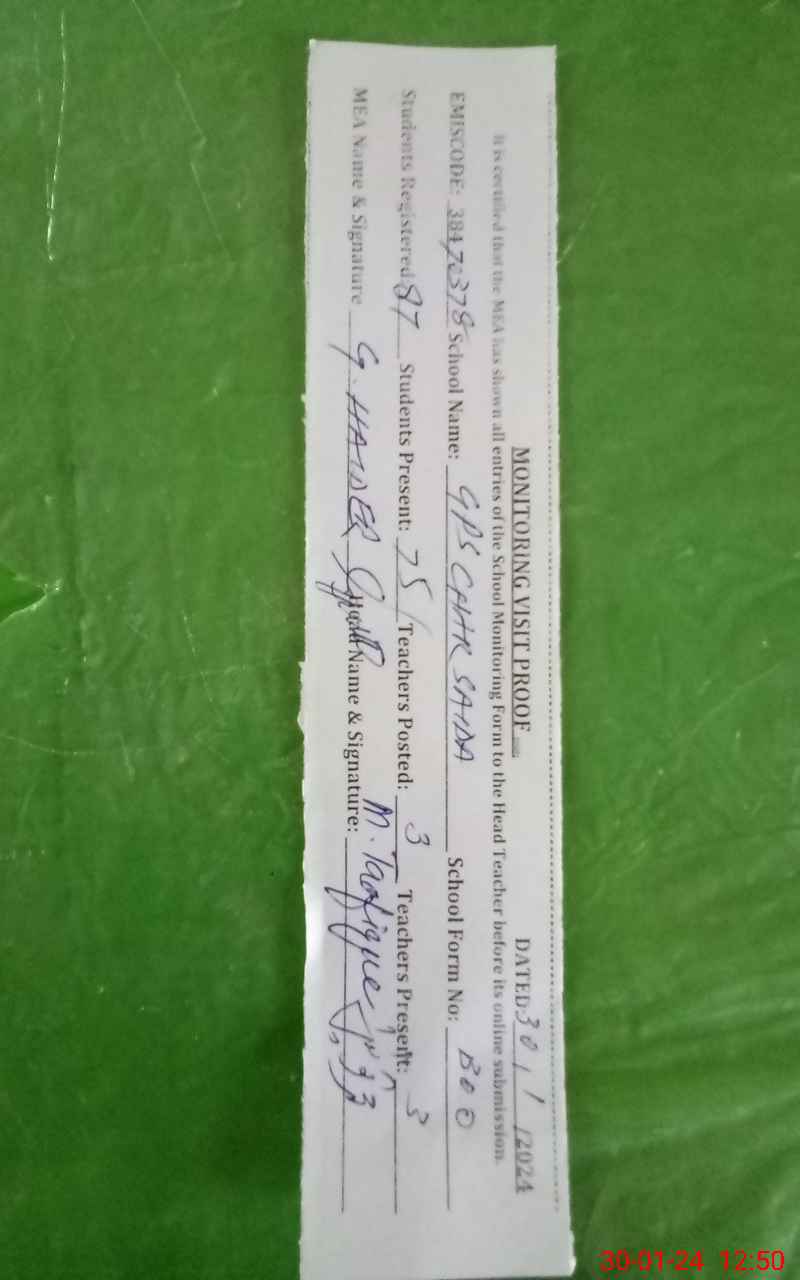 MONITORING VISIT PROOF DATED:30/1/2024
It is certified that the MEA has shown all entries of the School Monitoring Form to the Head Teacher before its online submission.
EMISCODE: 38470378 School Name: GPS CHHR SAIDA School Form No: B00
Students Registered 87 Students Present: 75 Teachers Posted: 3 Teachers Present: 3
MEA Name & Signature G. HAIDER Head Name & Signature: M. Taofique
30-01-24 12:50